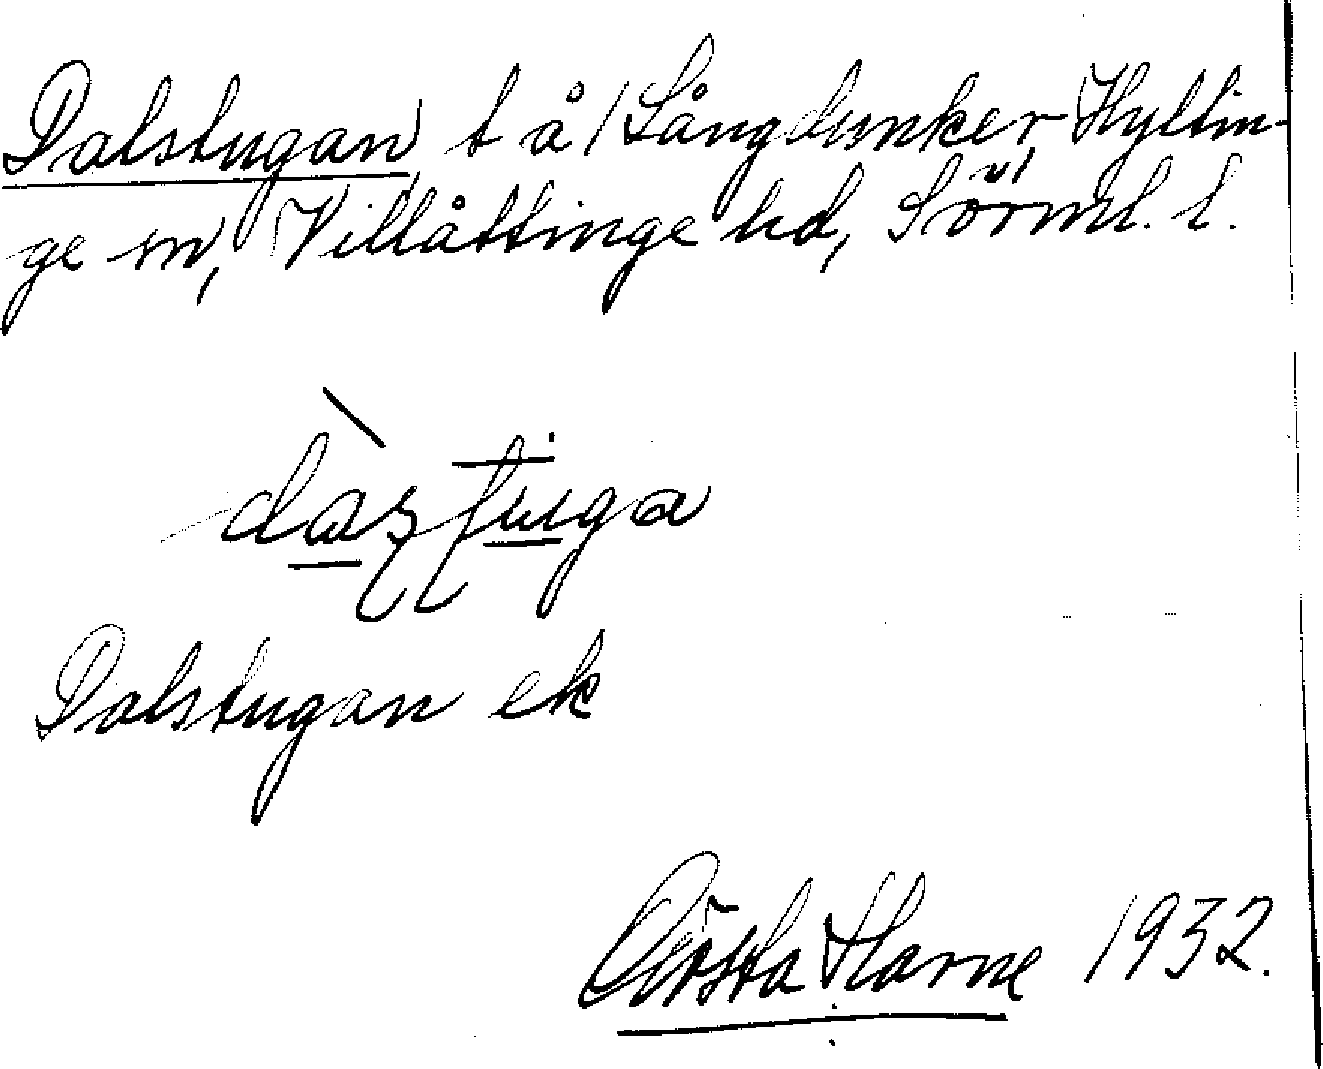 Dalstugan t å / Långdunker, Hyltin-
ge sn, Villåttinge hd, Sörml. l.
Dalstugan ek
Gösta Harne 1932.